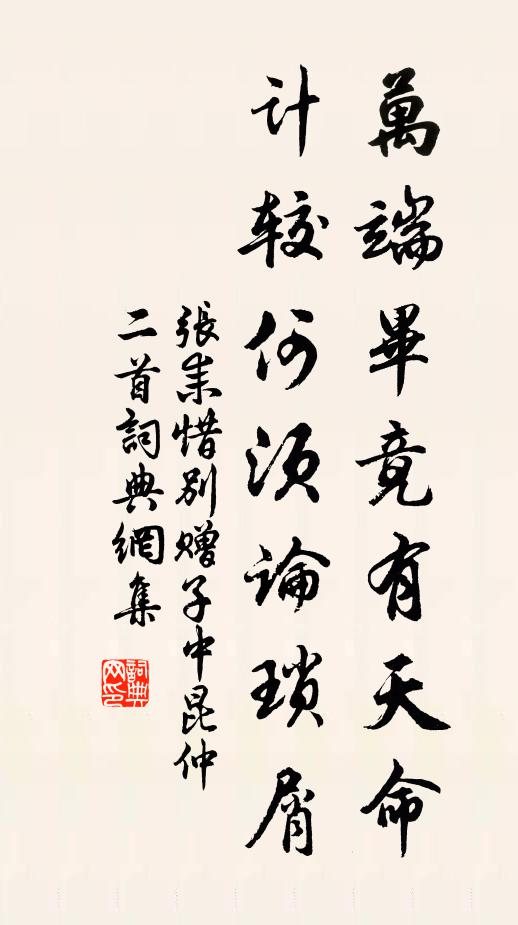 萬端畢竟有天命
计较何須論瑣屑
張耒惜别贈子中昆仲
二首詞典網集
詞典网印